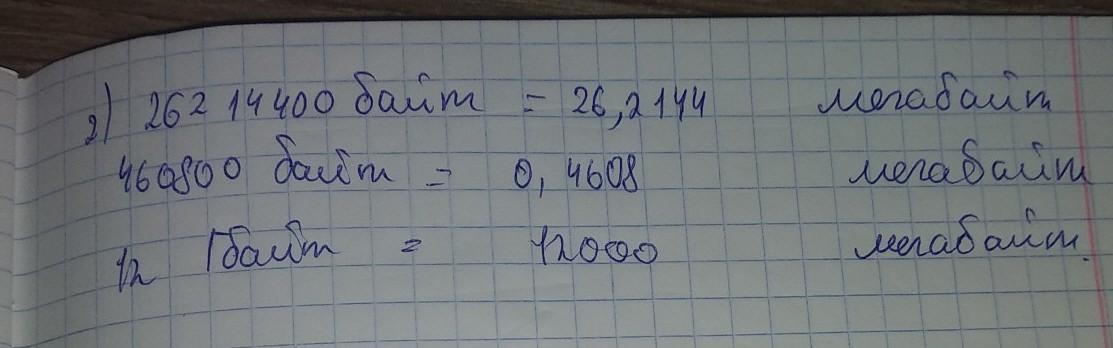 2) 26214400 байт = 26,2144 мегабайт
460800 байт = 0,4608 мегабайт
12 Гбайт = 12000 мегабайт.